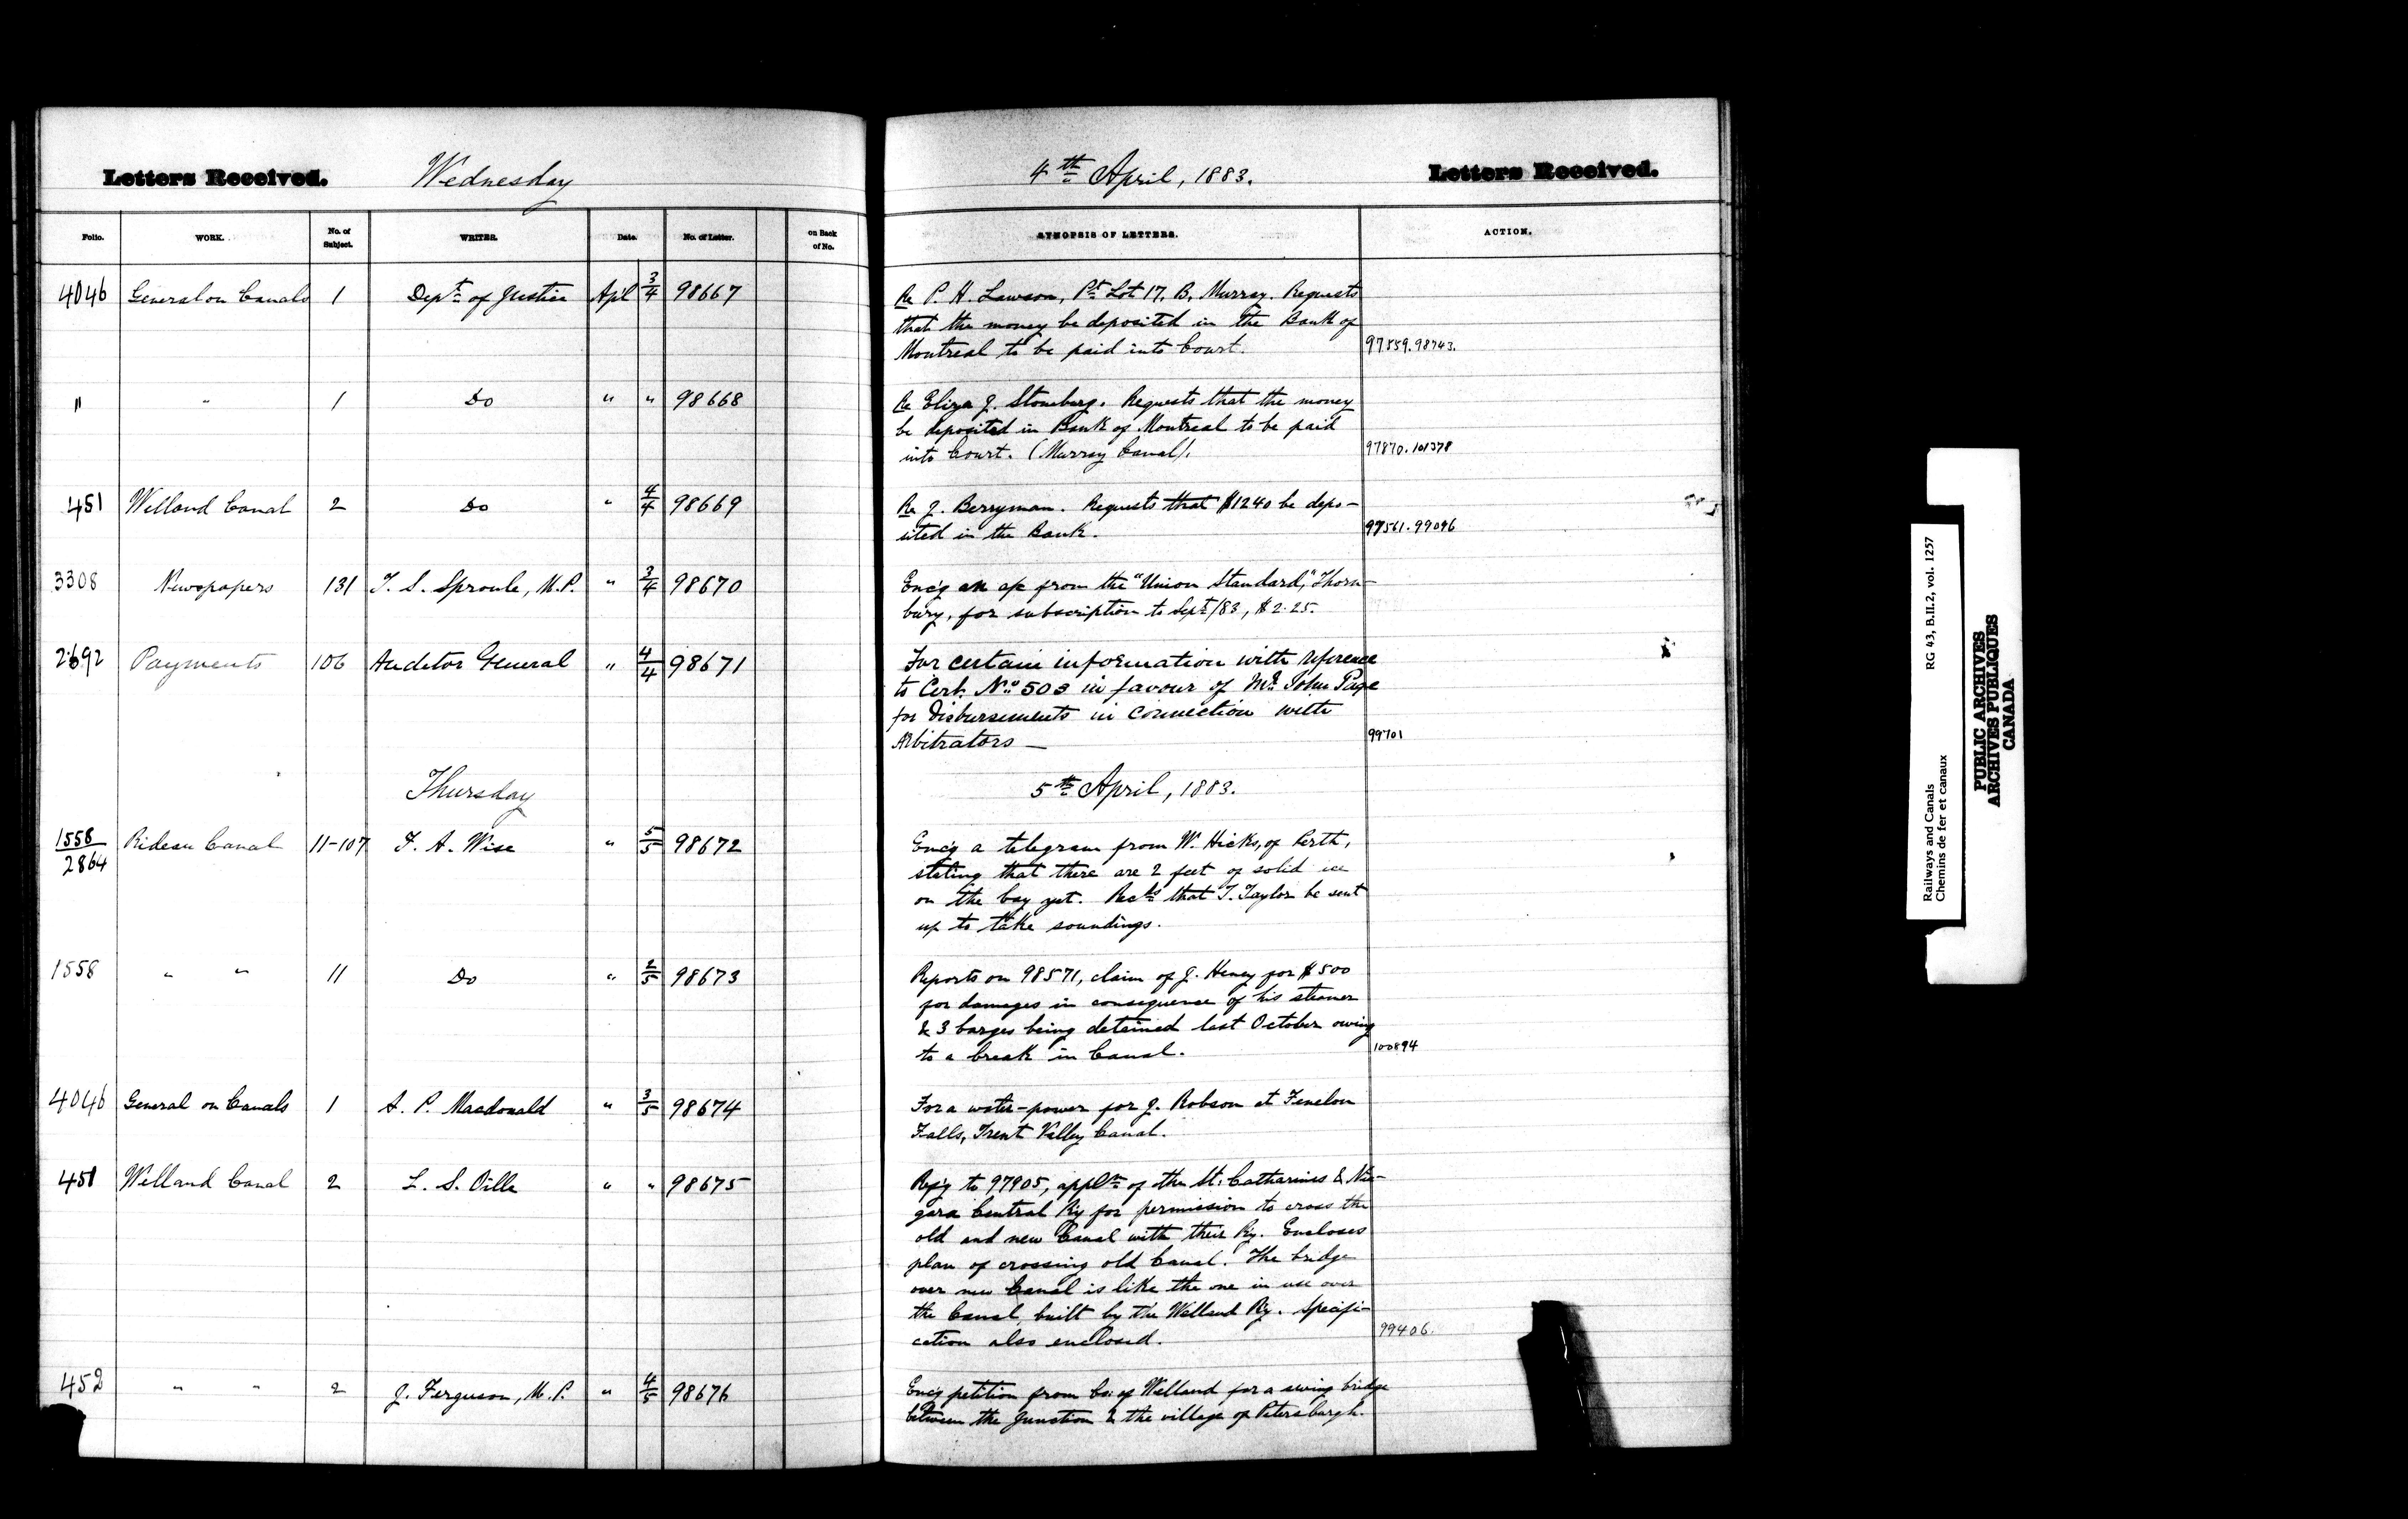 Letters Received. Wednesday 4th April, 1883. Letters Received.
Folio. WORK. No. of Subject. WRITER. Date. No. of Letter. on Back of No. SYNOPSIS OF LETTERS. ACTION.
4046 General on Canals 1 Dept of Justice Apl 3/4 98667 Re P. H. Lawson, Pt Lot 17, B, Murray. Requests
that the money be deposited in the Bank of
Montreal to be paid into Court. 97559.98743.
" " 1 Do " " 98668 Re Eliza J. Stoneburg. Requests that the money
be deposited in Bank of Montreal to be paid
into Court. (Murray Canal). 97870.101378
451 Welland Canal 2 Do " 4/4 98669 Re J. Berryman. Requests that $1240 be depo-
sited in the Bank. 97561.99096
3308 Newspapers 131 T. S. Sproule, M.P. " 3/4 98670 Enc'g an a/c from the "Union Standard," Thorn-
bury, for subscription to Sept/83, $2.25.
2692 Payments 106 Auditor General " 4/4 98671 For certain information with reference
to Cert. No 503 in favour of Mr John Page
for Disbursements in connection with
Arbitrators — 99701
Thursday 5th April, 1883.
1558/2864 Rideau Canal 11-107 F. A. Wise " 5/5 98672 Enc'g a telegram from W. Hicks, of Perth,
stating that there are 2 feet of solid ice
on the bay yet. Recds that T. Taylor be sent
up to take soundings.
1558 " " 11 Do " 2/5 98673 Reports on 98571, claim of J. Heney for $500
for damages in consequence of his steamer
& 3 barges being detained last October owing
to a break in Canal. 100894
4046 General on Canals 1 A. P. Macdonald " 3/5 98674 For a water-power for J. Robson at Fenelon
Falls, Trent Valley Canal.
451 Welland Canal 2 L. S. Oille " " 98675 Rep'g to 97905, appln of the St. Catharines & Nia-
gara Central Ry for permission to cross the
old and new Canal with their Ry. Encloses
plan of crossing old Canal. The bridge
over new Canal is like the one in use over
the Canal, built by the Welland Ry. Specifi-
cation also enclosed. 99406.
452 " " 2 J. Ferguson, M.P. " 4/5 98676 Enc'g petition from Co. of Welland for a swing bridge
between the Junction & the village of Petersburgh.
Railways and Canals RG 43, B.II.2, vol. 1257
Chemins de fer et canaux
PUBLIC ARCHIVES
ARCHIVES PUBLIQUES
CANADA